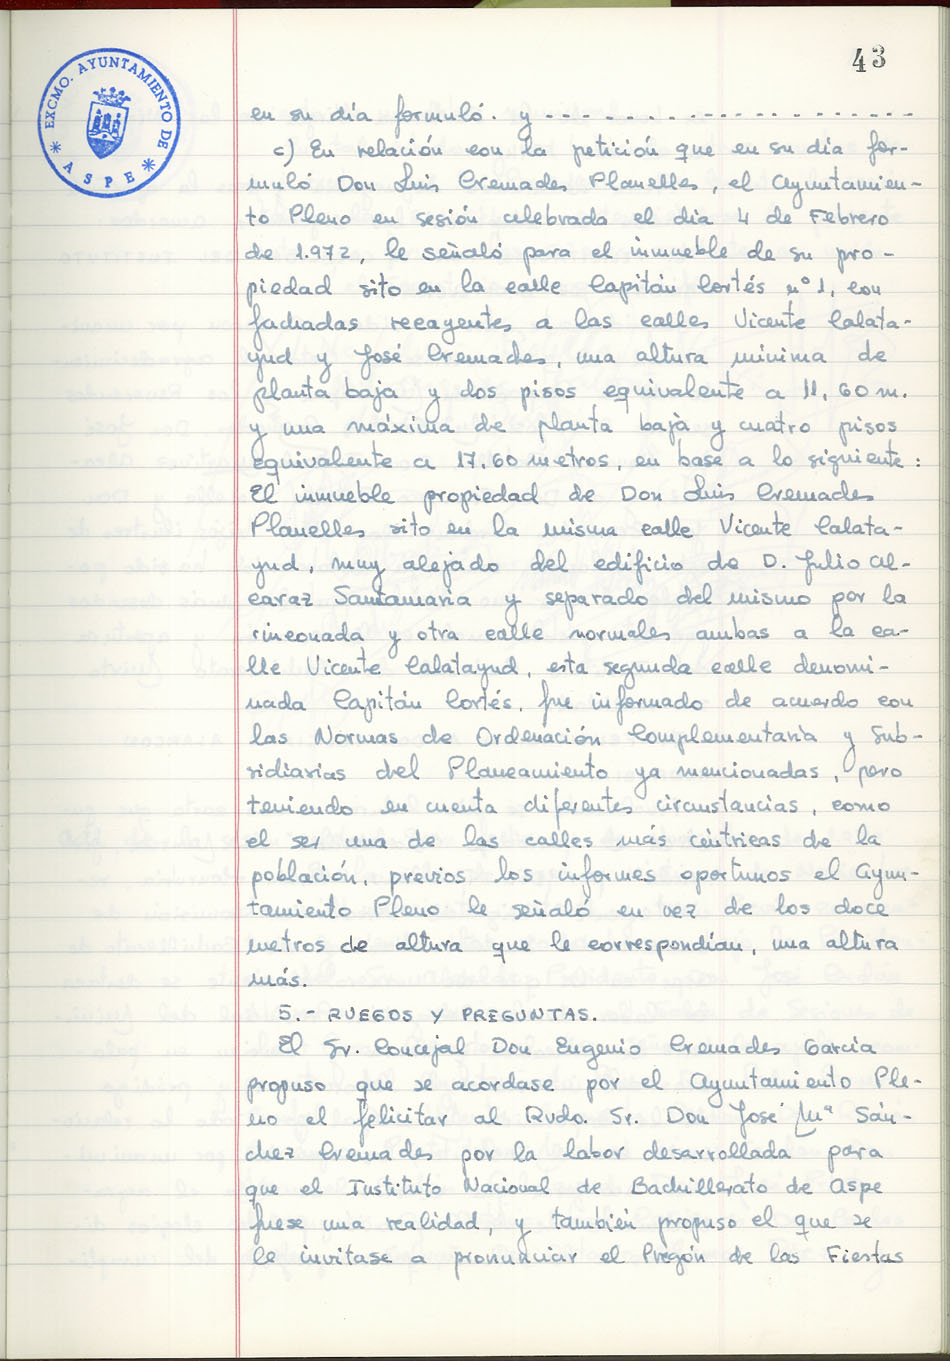 43
EXCMO. AYUNTAMIENTO DE
* ASPE *
en su día formuló. y - - - - - - - - - - - - - - - - - - - -
c) En relación con la petición que en su día for-
muló Don Luis Cremades Planelles, el Ayuntamien-
to Pleno en sesión celebrada el día 4 de Febrero
de 1.972, le señaló para el inmueble de su pro-
piedad sito en la calle Capitán Cortés nº 1, con
fachadas recayentes a las calles Vicente Calata-
yud y José Cremades, una altura mínima de
planta baja y dos pisos equivalente a 11,60 m.
y una máxima de planta baja y cuatro pisos
equivalente a 17,60 metros, en base a lo siguiente:
El inmueble propiedad de Don Luis Cremades
Planelles sito en la misma calle Vicente Calata-
yud, muy alejado del edificio de D. Julio Al-
caraz Santamaría y separado del mismo por la
rinconada y otra calle normales ambas a la ca-
lle Vicente Calatayud, esta segunda calle denomi-
nada Capitán Cortés, fue informado de acuerdo con
las Normas de Ordenación Complementaria y Sub-
sidiarias del Planeamiento ya mencionadas, pero
teniendo en cuenta diferentes circunstancias, como
el ser una de las calles más céntricas de la
población, previos los informes oportunos el Ayun-
tamiento Pleno le señaló en vez de los doce
metros de altura que le correspondían, una altura
más.
5.- RUEGOS Y PREGUNTAS.
El Sr. Concejal Don Eugenio Cremades García
propuso que se acordase por el Ayuntamiento Ple-
no el felicitar al Rvdo. Sr. Don José Mª Sán-
chez Cremades por la labor desarrollada para
que el Instituto Nacional de Bachillerato de Aspe
fuese una realidad, y también propuso el que se
le invitase a pronunciar el Pregón de las Fiestas